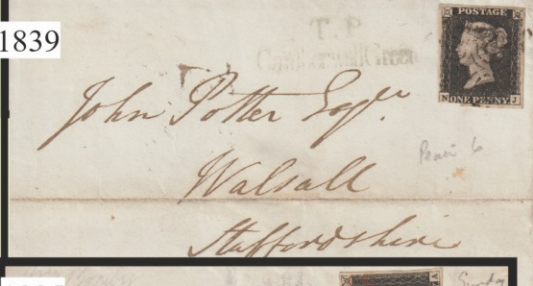 1839
T.P
Camberwell Green
POSTAGE
ONE PENNY
N J
John Potter Esqre
Walsall
Staffordshire
A
Sunday